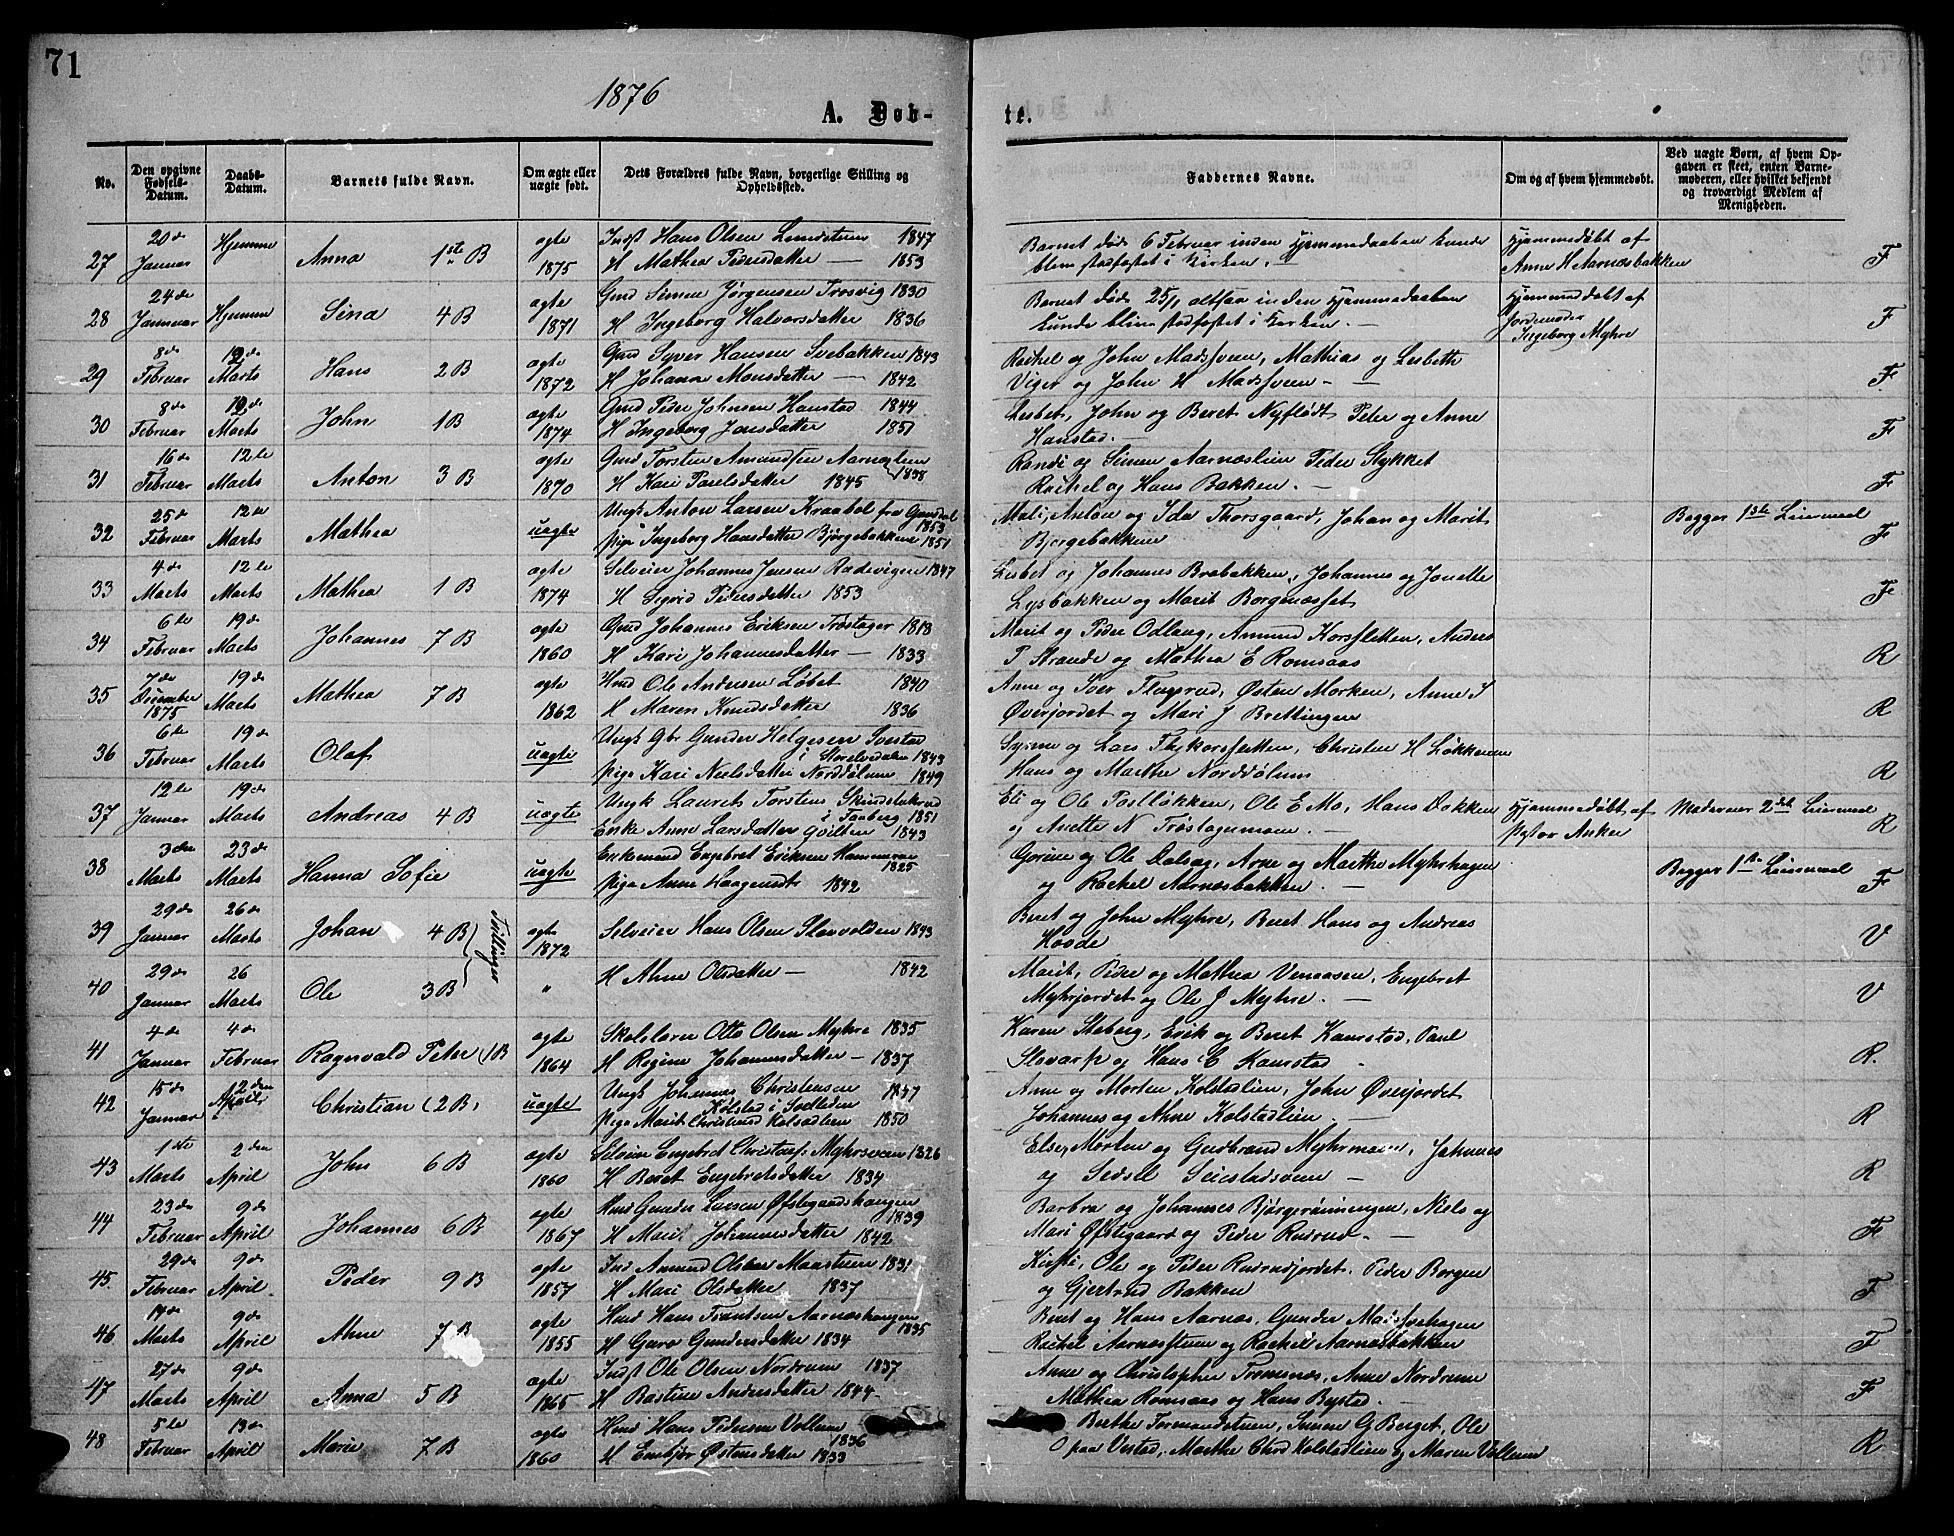 71
1876
A. Døb-
te.
No.
Den opgivne Fødsels-Datum.
Daabs-Datum.
Barnets fulde Navn.
Om ægte eller uægte født.
Dets Forældres fulde Navn, borgerlige Stilling og Opholdssted.
Faddernes Navne.
Om og af hvem hjemmedøbt.
Ved uægte Børn, af hvem Opgaven er skeet, enten Barnemoderen, eller hvilket bekjendt og troværdigt Medlem af Menigheden.
27 20de Januar Hjemme Anna 1ste B ægte 1875 Indst Hans Olsen Lundstuen 1847
H Mathea Pedersdatter — 1853
Barnet døde 6 Februar inden Hjemmedaaben kunde
blive stadfæstet i Kirken. —
Hjemmedøbt af
Anne H Aarnæsbakken
F
28 24de Januar Hjemme Sina 4 B ægte 1871 Gmd Simen Jørgensen Trosvig 1830
H Ingeborg Halvorsdatter 1836
Barnet døde 25/1 altsaa inden Hjemmedaaben
kunde blive stadfæstet i Kirken. —
Hjemmedøbt af
Jordemoder
Ingeborg Myhre
F
29 8de Februar 12de Marts Hans 2 B ægte 1872 Gmd Syver Hansen Svebakken 1843
H Johana Monsdatter — 1842
Rachel og John Madssveen, Mathias og Lisbeth
Viger og John H Madssveen —
F
30 8de Februar 12de Marts John 1 B ægte 1874 Gmd Peder Johnsen Hanstad 1844
H Ingeborg Jensdatter 1851
Lisbet, John og Beret Nyflødt Peter og Anne
Hanstad. —
F
31 16de Februar 12te Marts Anton 3 B ægte 1870 Gmd Torsten Amundsen Aarnæslien 1838
H Kari Paulsdatter 1845
Randi og Simen Aarnæslien Peder Stykket
Rachel og Hans Bakken. —
F
32 25de Februar 12te Marts Mathea uægte Ungk Anton Larsen Kraabøl fra Gausdal 1853
Pige Ingeborg Hansdatter Bjørgebakken 1851
Mali, Anton og Ida Thorsgaard, Johan og Marit
Bjørgebakken
Begges 1ste Leiermaal
F
33 4de Marts 12te Marts Mathea 1 B ægte 1874 Selveier Johannes Jensen Rudsvigen 1847
H Sigrid Pedersdatter 1853
Lisbet og Johannes Brabakken, Johannes og Jonette
Lysbakken og Marit Borgenæsset
F
34 6te Februar 19de Marts Johannes 7 B ægte 1860 Gmd Johannes Eriksen Trøstager 1818
H Kari Johannesdatter — 1833
Marit og Peder Odlaug, Amund Korsfletten, Anders
P Strande og Mathea E Romsaas
R
35 7de December 1875 19de Marts Mathea 7 B ægte 1862 Hmd Ole Andersen Løbet 1840
H Maren Knudsdatter 1836
Anne og Iver Flugsrud, Østen Morken, Anne I
Øverjordet og Mari J Brettingen
R
36 6te Februar 19de Marts Olaf uægte Ungk Gbr Gunder Helgesen Svestad
i Storelvedalen 1843
Pige Kari Nielsdatter Norddølum 1849
Syrine og Lars Flykorsfletten, Christen H Løkkenen
Hans og Marthe Norddølum
R
37 12te Januar 19de Marts Andreas 4 B uægte Ungk Laurets Torstens Skindstakrud
i Faaberg 1851
Enke Anne Larsdatter Qvilten 1843
Eli og Ole Postløkken, Ole E Mo, Hans Dokken
og Anette N Trøstagermoen. —
Hjemmedøbt af
Pastor Anker
Moderens 2det Leiermaal
R
38 3die Marts 23de Marts Hanna Sofie uægte Enkemand Engebret Eriksen Hammeren 1825
Pige Anne Haagensdt 1842
Gorine og Ole Dalseg, Arne og Marthe Myhrhagen
og Rachel Aarnæsbakken. —
Begges 1ste Leiermaal
F
39 29de Januar 26de Marts Johan 4 B ægte 1872 Selveier Hans Olsen Slaavolden 1843
Tvillinger
Beret og John Myhre, Beret Hans og Andreas
Hovde
V
40 29de Januar 26 Marts Ole 3 B " H Ahne Olsdatter — 1842
Marit, Peder og Mathea Venaasen, Engebret
Myhrjordet og Ole J Myhre. —
V
41 4de Januar 4de Februar Ragnvald Peter (1 B ægte 1864 Skolelærer Otto Olsen Myhre 1835
H Regine Johannesdatter — 1837
Karen Steberg, Erik og Beret Kamstad, Paul
Slevarp og Hans E Kamstad —
R.
42 15de Januar 2den April Christian (2 B) uægte Ungk Johannes Christensen 1847
Kolstad i Sødladen
Pige Marit Christensd Kolstadlien 1850
Anne og Morten Kolstadlien, John Øverjordet
Johannes og Ahne Kolstadlien. —
R
43 1ste Marts 2den April John 6 B ægte 1860 Selveier Engebret Christophs Myhrsveen 1826
H Beret Engebretsdatter 1834
Else, Morten og Gudbrand Myhrmoen, Johannes
og Sedsel Seiestadsveen —
R
44 23de Februar 9de April Johannes 6 B ægte 1867 Hmd Gunder Larsen Øfstegaardshaugen 1839
H Mari Johannesdatter 1842
Barbra og Johannes Bjørgerønningen, Niels og
Mari Øfstegaard og Peder Rudrud. —
F
45. 29de Februar 9de April Peder 9 B ægte 1857 Ind Amund Olsen Moastuen 1831
H Mari Olsdatter 1837
Kirsti, Ole og Peder Rudrudjordet. Peder Borgen
og Gjertrud Bakken
F
46 14de Marts 9de April Ahne 7 B ægte 1855 Hmd Hans Frantsen Aarnæshaugen 1835
H Guro Gundersdatter 1834
Beret og Hans Aarnæs, Gunder Madsshagen
Rachel Aarnæstuen og Rachel Aarnæsbakken
F
47 27de Marts 9de April Anna 5 B ægte 1865 Indst Ole Olsen Nordrum 1837
H Bastine Andersdatter 1844
Anne og Christopher Tromsnæs, Anne Nordrum
Mathea Romsaas og Hans Bystad. —
F
48 5te Februar 13de April Marie 7 B ægte 1860 Hmd Hans Pedersen Vollum 1836
H Embjør Østensdatter 1833
Berthe Tormundstuen, Simen G Berget, Ole
O paa Vestad, Marthe Chrd Kolstadlien og Maren Vollum
R